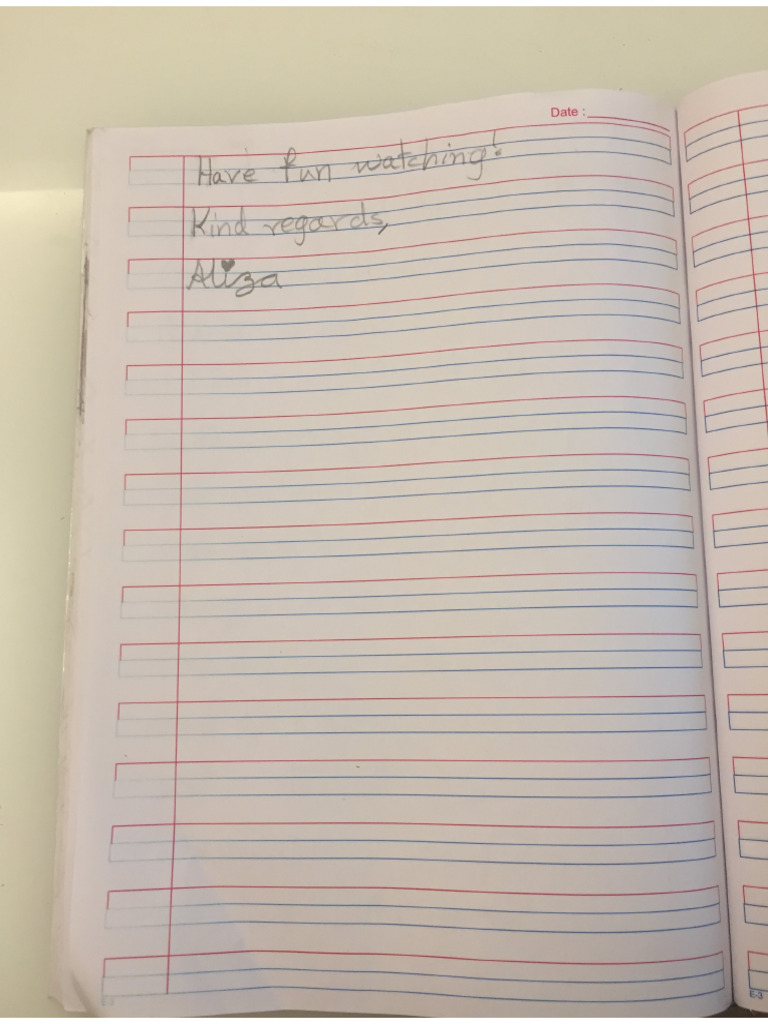 Date :
Have fun watching!
Kind regards,
Aliza
E-3